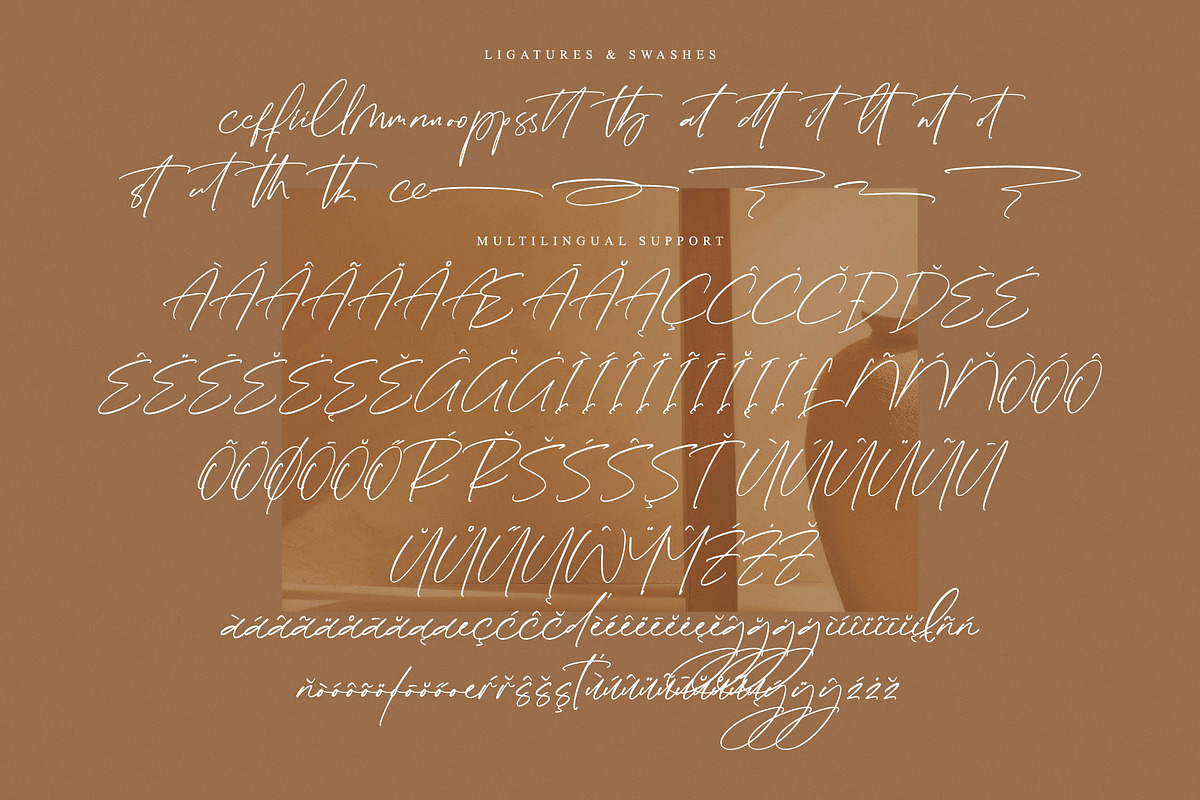 LIGATURES & SWASHES
cc ff ri ll mm nn oo pp ss tt th at dt it lt nt ot
st ut th tk ce
MULTILINGUAL SUPPORT
ÀÁÂÃÄÅÆĀĂĄÇĈĊČĐĎÈÉ
ÊËĒĔĖĘĚĜĞĠÌÍÎÏĨĪĬĮİŁÑŃŇÒÓÔ
ÕÖØŌŎŐŔŘŠŚŜŞŤÙÚÛÜŨŪ
ŬŮŰŲŴŸŶŹŻŽ
àáâãäåāăąæçćĉčďèéêëēĕėęěĝğġģìíîïĩīĭįłñń
ňòóôõöøōŏőœŕřŝšşťùúûüũūŭůűųýÿŷźżž